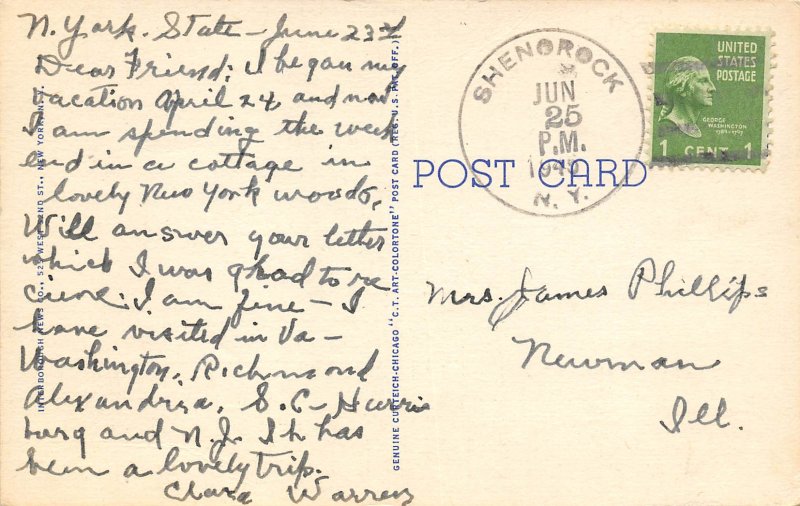 N. York. State - June 23rd
Dear Friend; I began my
vacation April 24, and now
I am spending the week
end in a cottage in
lovely New York woods,
Will answer your letter
which I was glad to re
cieve. I am fine - I
have visited in Va -
Washington, Richmond
Alexandria, S.C- Harris
burg and N.J. It has
been a lovely trip.
Clara Warren
INTERBOROUGH NEWS CO., 525 WEST 52ND ST., NEW YORK, N.Y.
GENUINE CURTEICH-CHICAGO "C.T. ART-COLORTONE" POST CARD (REG. U.S. PAT. OFF.)
POST CARD
SHENOROCK
JUN
25
P.M.
N. Y.
UNITED
STATES
POSTAGE
GEORGE
WASHINGTON
1789-1797
1 CENT 1
Mrs. James Phillips
Newman
Ill.